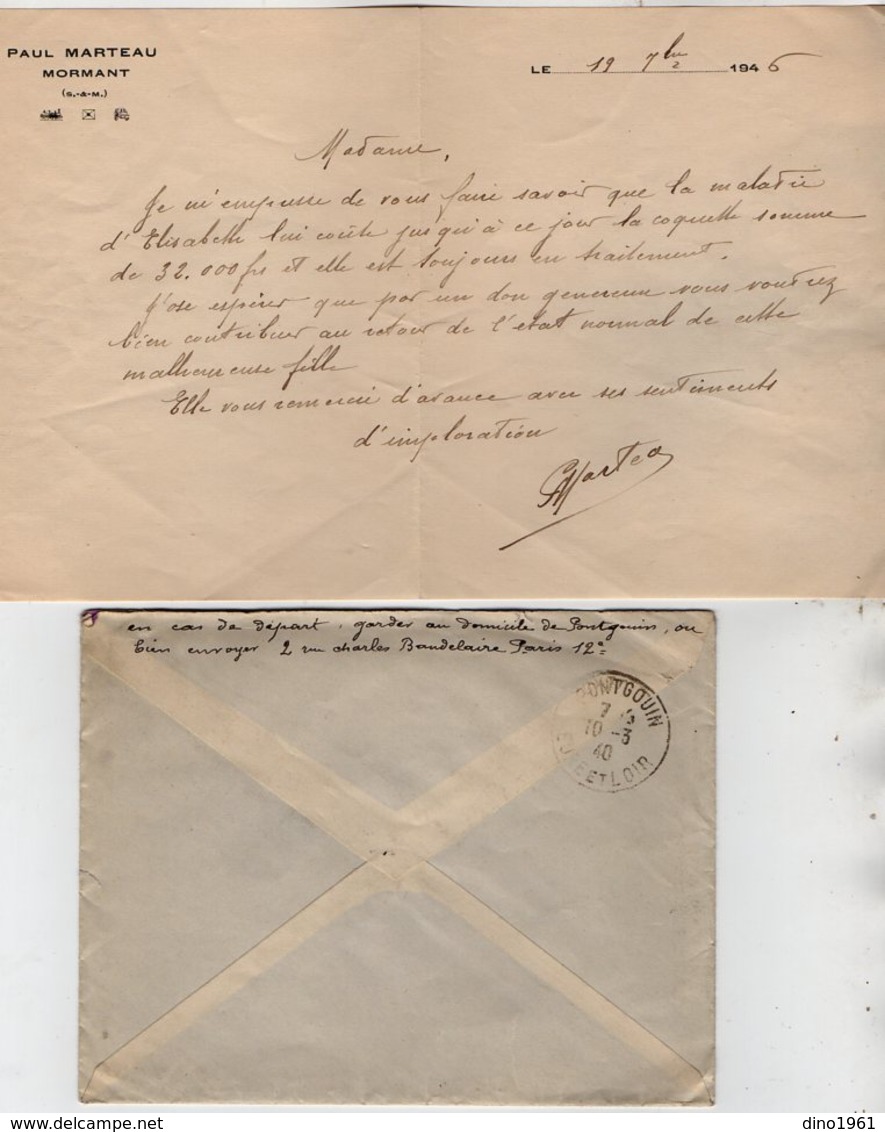 PAUL MARTEAU
MORMANT
(S.-&-M.)
LE 19 7bre 1946
Madame,
Je m'empresse de vous faire savoir que la maladie
d'Elisabeth lui coûte jusqu'à ce jour la coquette somme
de 32.000 frs et elle est toujours en traitement.
J'ose espérer que par un don genereux vous voudrez
bien contribuer au retour de l'état normal de cette
malheureuse fille
Elle vous remercie d'avance avec ses sentiments
d'imploration
PMarteau
en cas de départ, garder au domicile de Pontgouin, ou
bien envoyer 2 rue charles Baudelaire Paris 12e
PONTGOUIN
10 -3
40
EURE ET LOIR
delcampe.net
dino1961